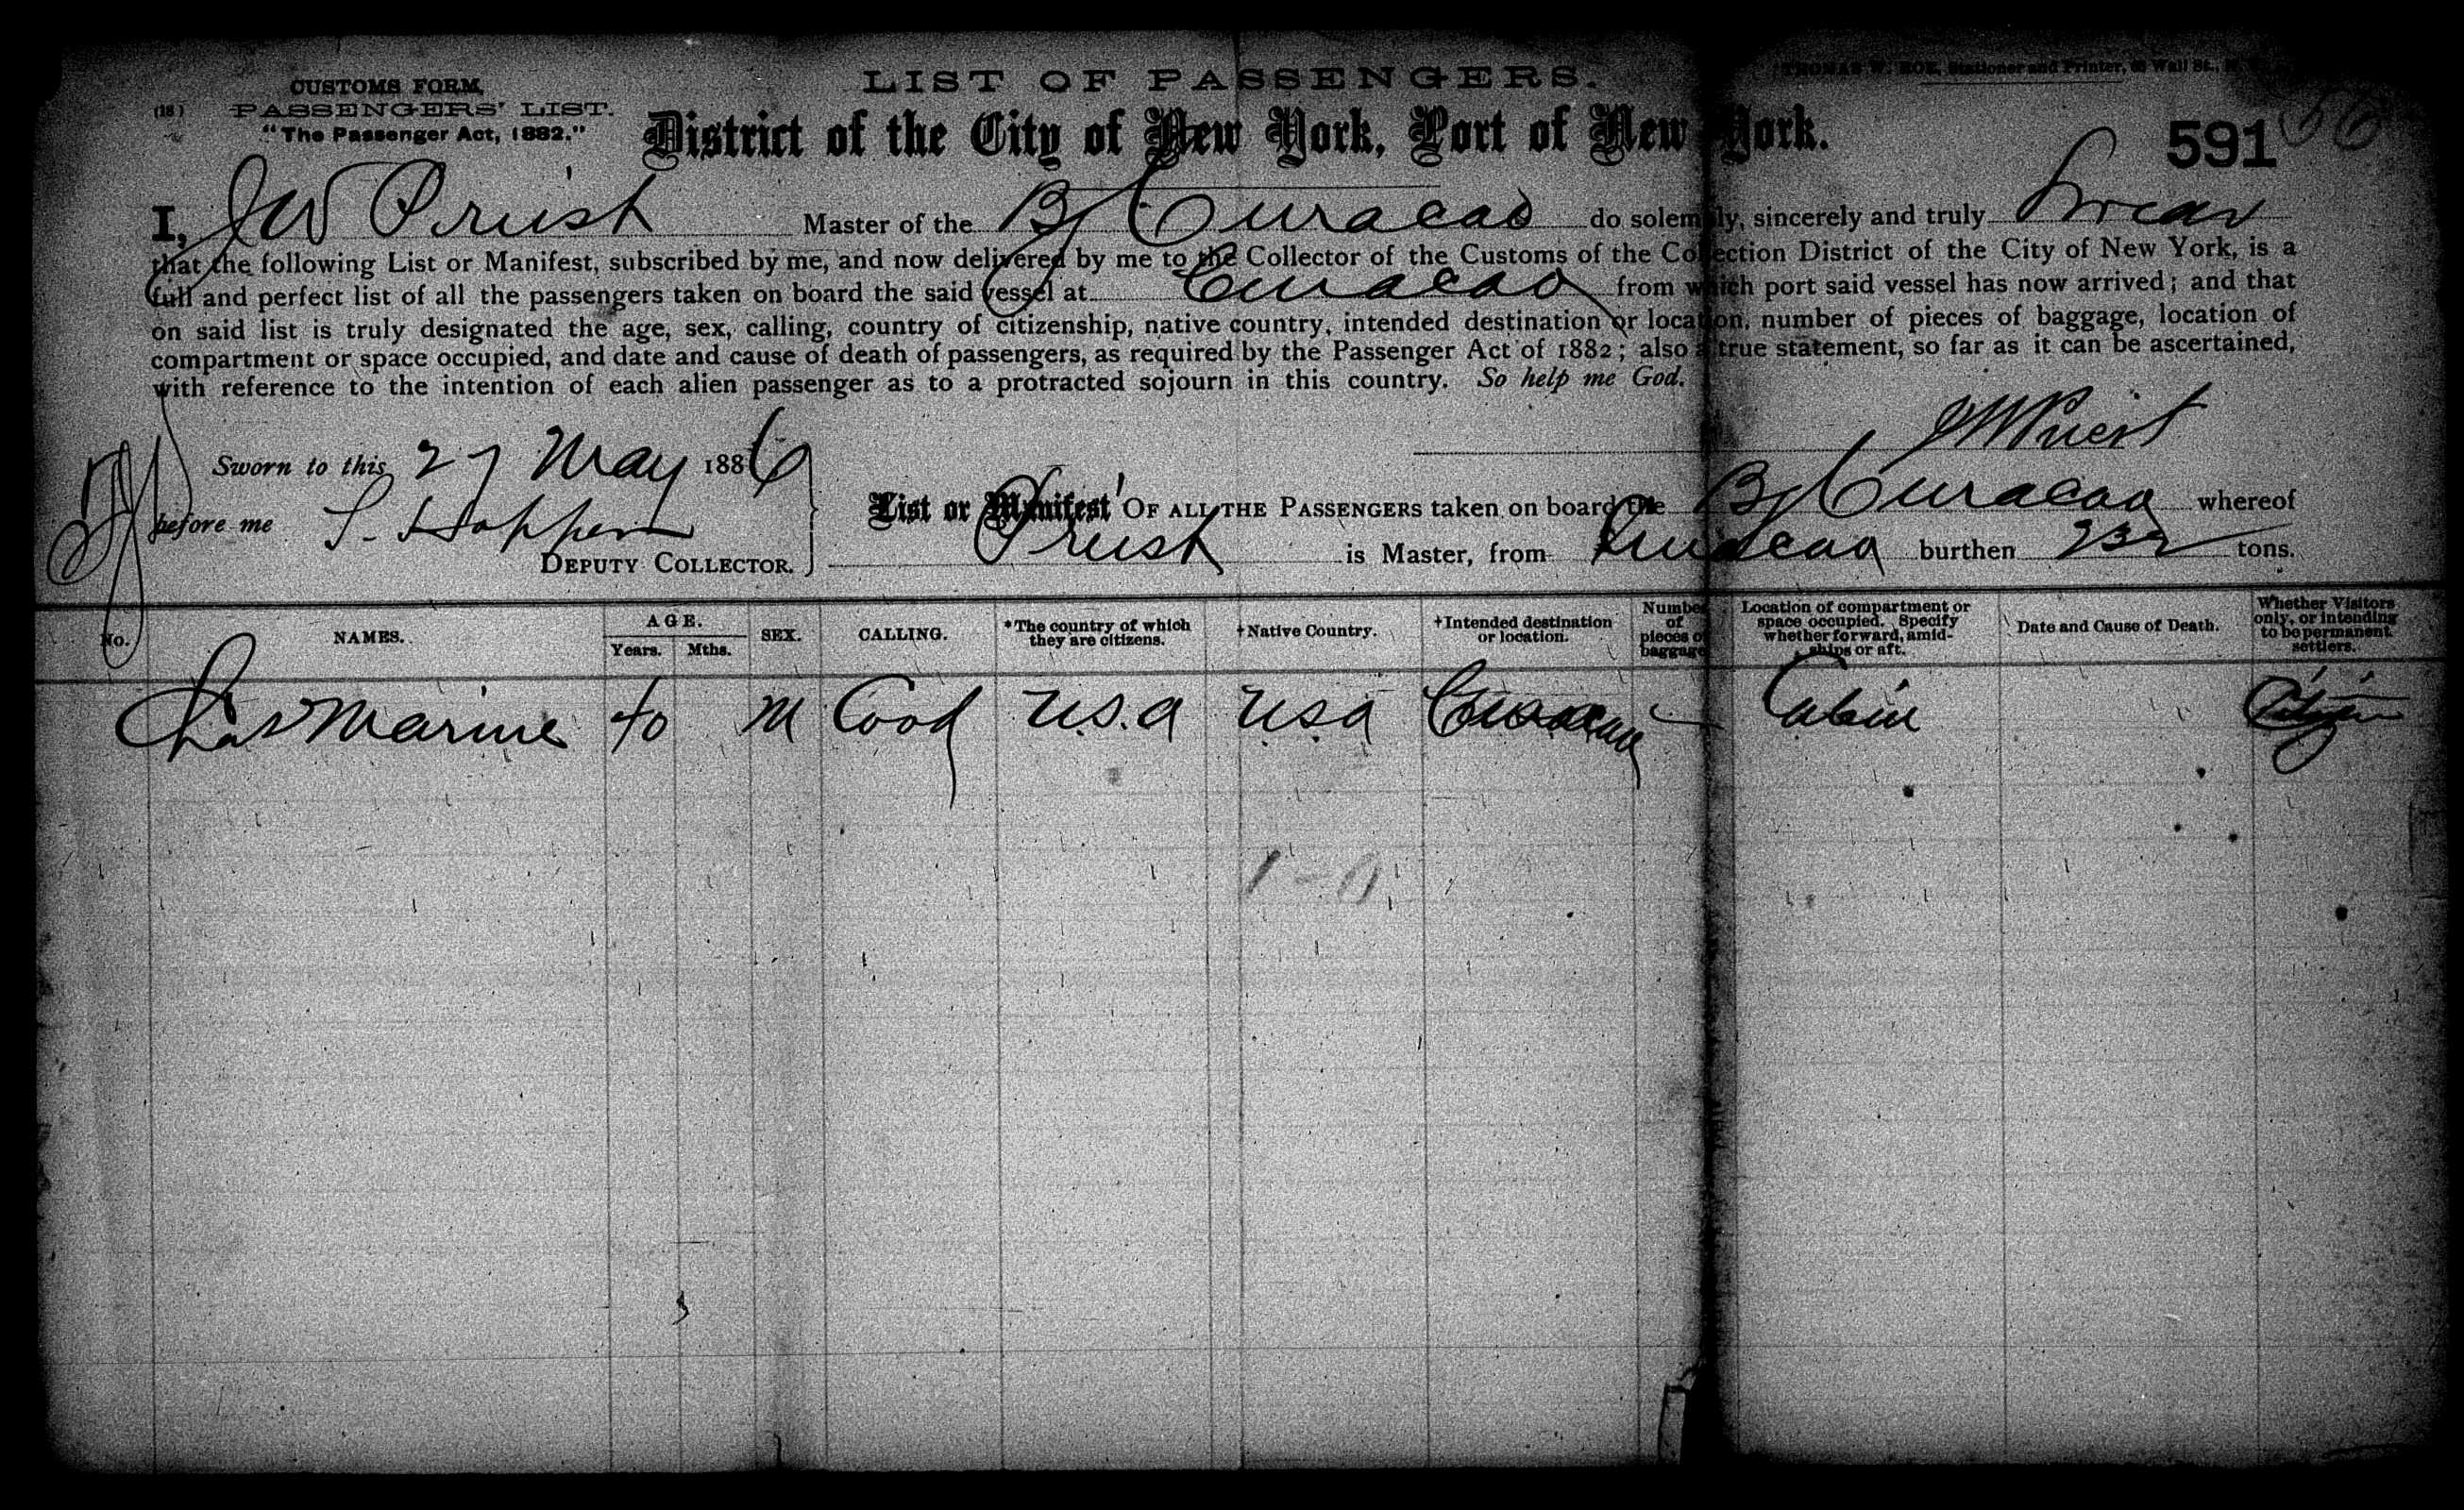 CUSTOMS FORM,
(18) PASSENGERS' LIST.
"The Passenger Act, 1882."
LIST OF PASSENGERS.
THOMAS W. ROE, Stationer and Printer, Wall St., N.
District of the City of New York, Port of New York.
591 56
I, JW Priest Master of the Bg Curacao do solemnly, sincerely and truly swear
that the following List or Manifest, subscribed by me, and now delivered by me to the Collector of the Customs of the Collection District of the City of New York, is a
full and perfect list of all the passengers taken on board the said vessel at Curacao from which port said vessel has now arrived; and that
on said list is truly designated the age, sex, calling, country of citizenship, native country, intended destination or location, number of pieces of baggage, location of
compartment or space occupied, and date and cause of death of passengers, as required by the Passenger Act of 1882; also a true statement, so far as it can be ascertained,
with reference to the intention of each alien passenger as to a protracted sojourn in this country. So help me God.
JW Priest
Sworn to this 27 May 1886
before me S. Hopper
DEPUTY COLLECTOR.
List or Manifest OF ALL THE PASSENGERS taken on board the Bg Curacao whereof
Priest is Master, from Curacao burthen 232 tons.
No. NAMES. AGE. Years. Mths. SEX. CALLING. *The country of which they are citizens. †Native Country. †Intended destination or location. Number of pieces of baggage Location of compartment or space occupied. Specify whether forward, amidships or aft. Date and Cause of Death. Whether Visitors only, or intending to be permanent settlers.
Chas Marine 40 M U.S.A USA Cabin
1-0